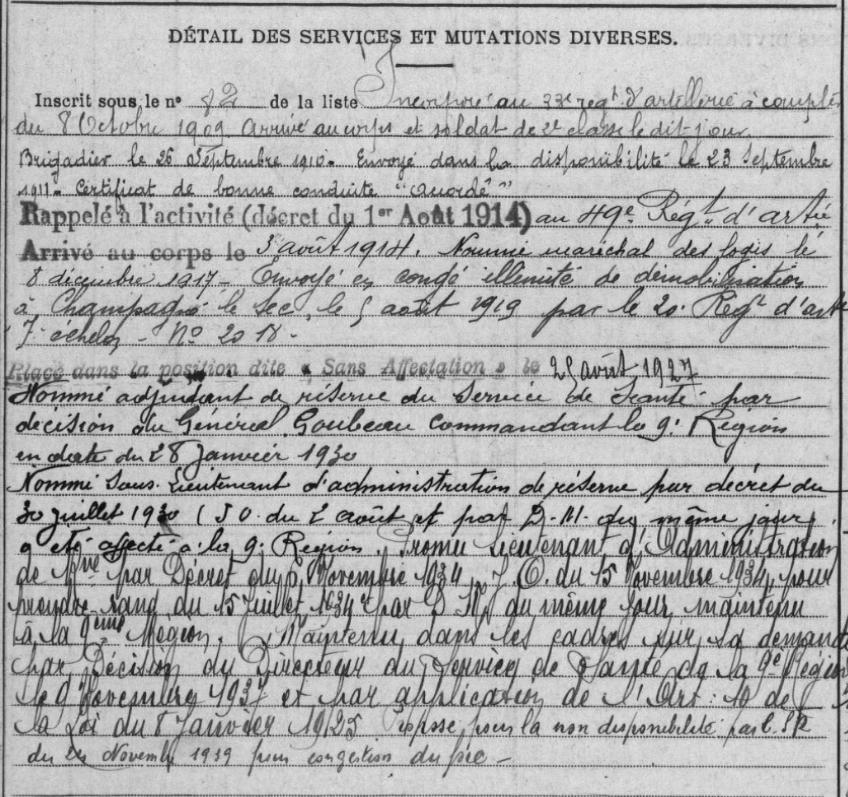 DÉTAIL DES SERVICES ET MUTATIONS DIVERSES.
Inscrit sous le n° 82 de la liste Incorporé au 33e regt d'artillerie à compter
du 8 Octobre 1909. Arrivé au corps et soldat de 2e classe le dit jour.
Brigadier le 26 Septembre 1910. Envoyé dans la disponibilité le 23 Septembre
1911. Certificat de bonne conduite "accordé"
Rappelé à l'activité (décret du 1er Août 1914) au 49e Régt d'artie
Arrivé au corps le 3 août 1914. Nommé maréchal des logis le
8 décembre 1917. Envoyé en congé illimité de démobilisation
à Champagné le Sec, le 5 août 1919 par le 20e Regt d'artie
7e échelon - No 2018 -
Placé dans la position dite « Sans Affectation » le 25 août 1927
Nommé adjudant de réserve du Service de Santé par
décision du Général Goubeau commandant la 9e Région
en date du 28 Janvier 1930
Nommé Sous-Lieutenant d'administration de réserve par décret du
30 juillet 1930 (J.O. du 2 août et par D.M. du même jour,
a été affecté à la 9e Région. Promu Lieutenant d'Administration
de Rve par Décret du 6 Novembre 1934, J.O. du 15 Novembre 1934, pour
prendre rang du 15 Juillet 1934 par D.M. du même jour, maintenu
à la 9ème Région. Maintenu dans les cadres sur sa demande
par Décision du Directeur du Service de Santé de la 9e Région
le 9 Novembre 1937 et par application de l'Art: 10 de
la Loi du 8 Janvier 1925 proposé pour la non disponibilité par C.S.R
du Novembre 1939 pour congestion du foie -